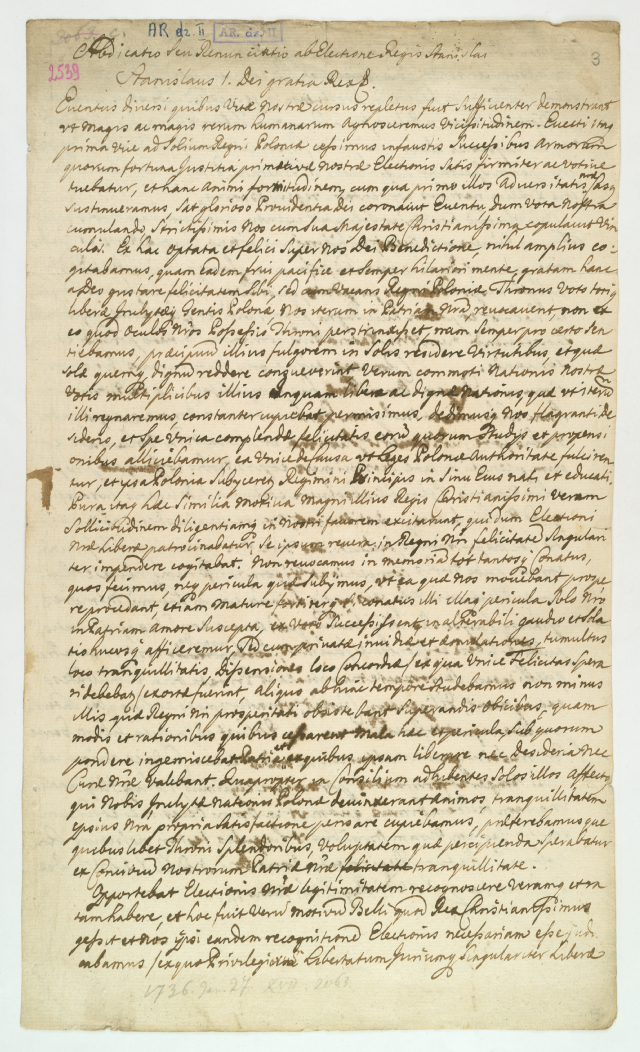 AR dz. II AR. dz. II
3
2539
Abdicatio seu Renunciatio ab Electione Regis Stanislai
Stanislaus I. Dei gratia Rex &.
Eventus diversi quibus Vitæ Nostræ cursus repletus fuit sufficienter demonstrant
ut magis ac magis rerum humanarum agnosceremus Vicissitudinem. Evecti itaq
prima vice ad solium Regni Poloniæ cessimus infaustis successibus Armorum
quorum fortuna Justitia primitivæ Nostræ Electionis satis firmiter ac votive
tuebatur, et hanc animi fortitudinem, cum qua primo illos adversitatis nræ casq
sustinueramus sat glorioso Providentia Dei coronavit Eventu, dum vota nostra
cumulando strictissimis Nos cum sua Majestate Christianissima copulavit Vin
culis. Ex hac optata et felici super nos Dei Benedictione, nihil amplius co:
gitabamus, quam eadem frui pacifice et semper hilariori mente, gratam hanc
a Deo gustare felicitatem sibi, sed cum vacans Regni Poloniæ Thronus Voto
liberæ Inclytæq Gentis Polonæ Nos iterum in Patriam Nram revocavent, non et
eo quod oculos Nros Possessio Throni perstrinxisset, nam semper pro certo sen
tiebamus, præcipuum illius fulgorem in solis residere Virtutibus, et quæ
solæ quemq dignum reddere consueverint Verum commoti Nationis Nostræ
Votis multiplicibus illius unquam liberæ ac dignæ Nationis, quæ ut iterum
illi regnaremus, constanter cupiebat, permisimus, dedimusq Nos flagranti de
siderio, et spe unica complendæ felicitatis eorum quorum studiis et propensi
onibus alliciebamur, ea unice de causa ut Leges Polonæ Authoritate fulciren
tur, et ipsa Polonia subjiceret Regimini Principis in sinu ejus nati et educati
Pura itaq hæc similia motiva Magni illius Regis Christianissimi veram
sollicitudinem diligentiamq in nostri favorem excitarunt, qui dum Electioni
Nræ liberæ patrocinabatur, se ipsum revera in Regni Nri felicitatem singulari
ter impendere cogitabat. Non revocamus in memoriam tot tantosq Conatus,
quos fecimus, neq pericula quæ subijmus, ut ea quæ nos movebant prope
re procedant, etiam mature fortiterq, si conatus illi illaq pericula solo Nro
in Patriam amore suscepta, ex Voto successissent inalterabili gaudio et sola
tio hucusq afficeremur, sed cum privatæ invidiæ et æmulationes, tumultus
loco tranquillitatis, Dissensiones loco Concordiæ /ex qua unice Felicitas spera
ri debebat/ exortæ fuerint, aliquo ab hinc tempore studebamus non minus
illis quæ Regni Nri prosperitati obsistebant superandis obicibus, quam
modis et rationibus quibus cessarent mala hæc et pericula, sub quorum
pondere ingemiscebat Patria et ex quibus ipsam liberare nec Desideria nec
Curæ Nræ valebant. Quapropter in Consilium adhibentes solos illos affectq
qui Nobis Inclytæ Nationis Polonæ devinxerant animos, tranquillitatem
ipsius Nra propria satisfactione pensare cupiebamus, præferebamusque
quibuslibet Throni splendoribus, Voluptatem quæ percipienda sperabatur
ex Civium Nostrorum Patriæ Nræ felicitate tranquillitate.
Oportebat Electionis Nræ legitimitatem recognoscere Veramq et ra
tam habere, et hoc fuit Verum motivum Belli quod Rex Christianissimus
gessit et Nos ipsi eandem recognitionem Electionis necessariam esse judi
cabamus /ex quo Privilegiorum Libertatum Juriumq singulariter Liberæ
1736. Jan. 27